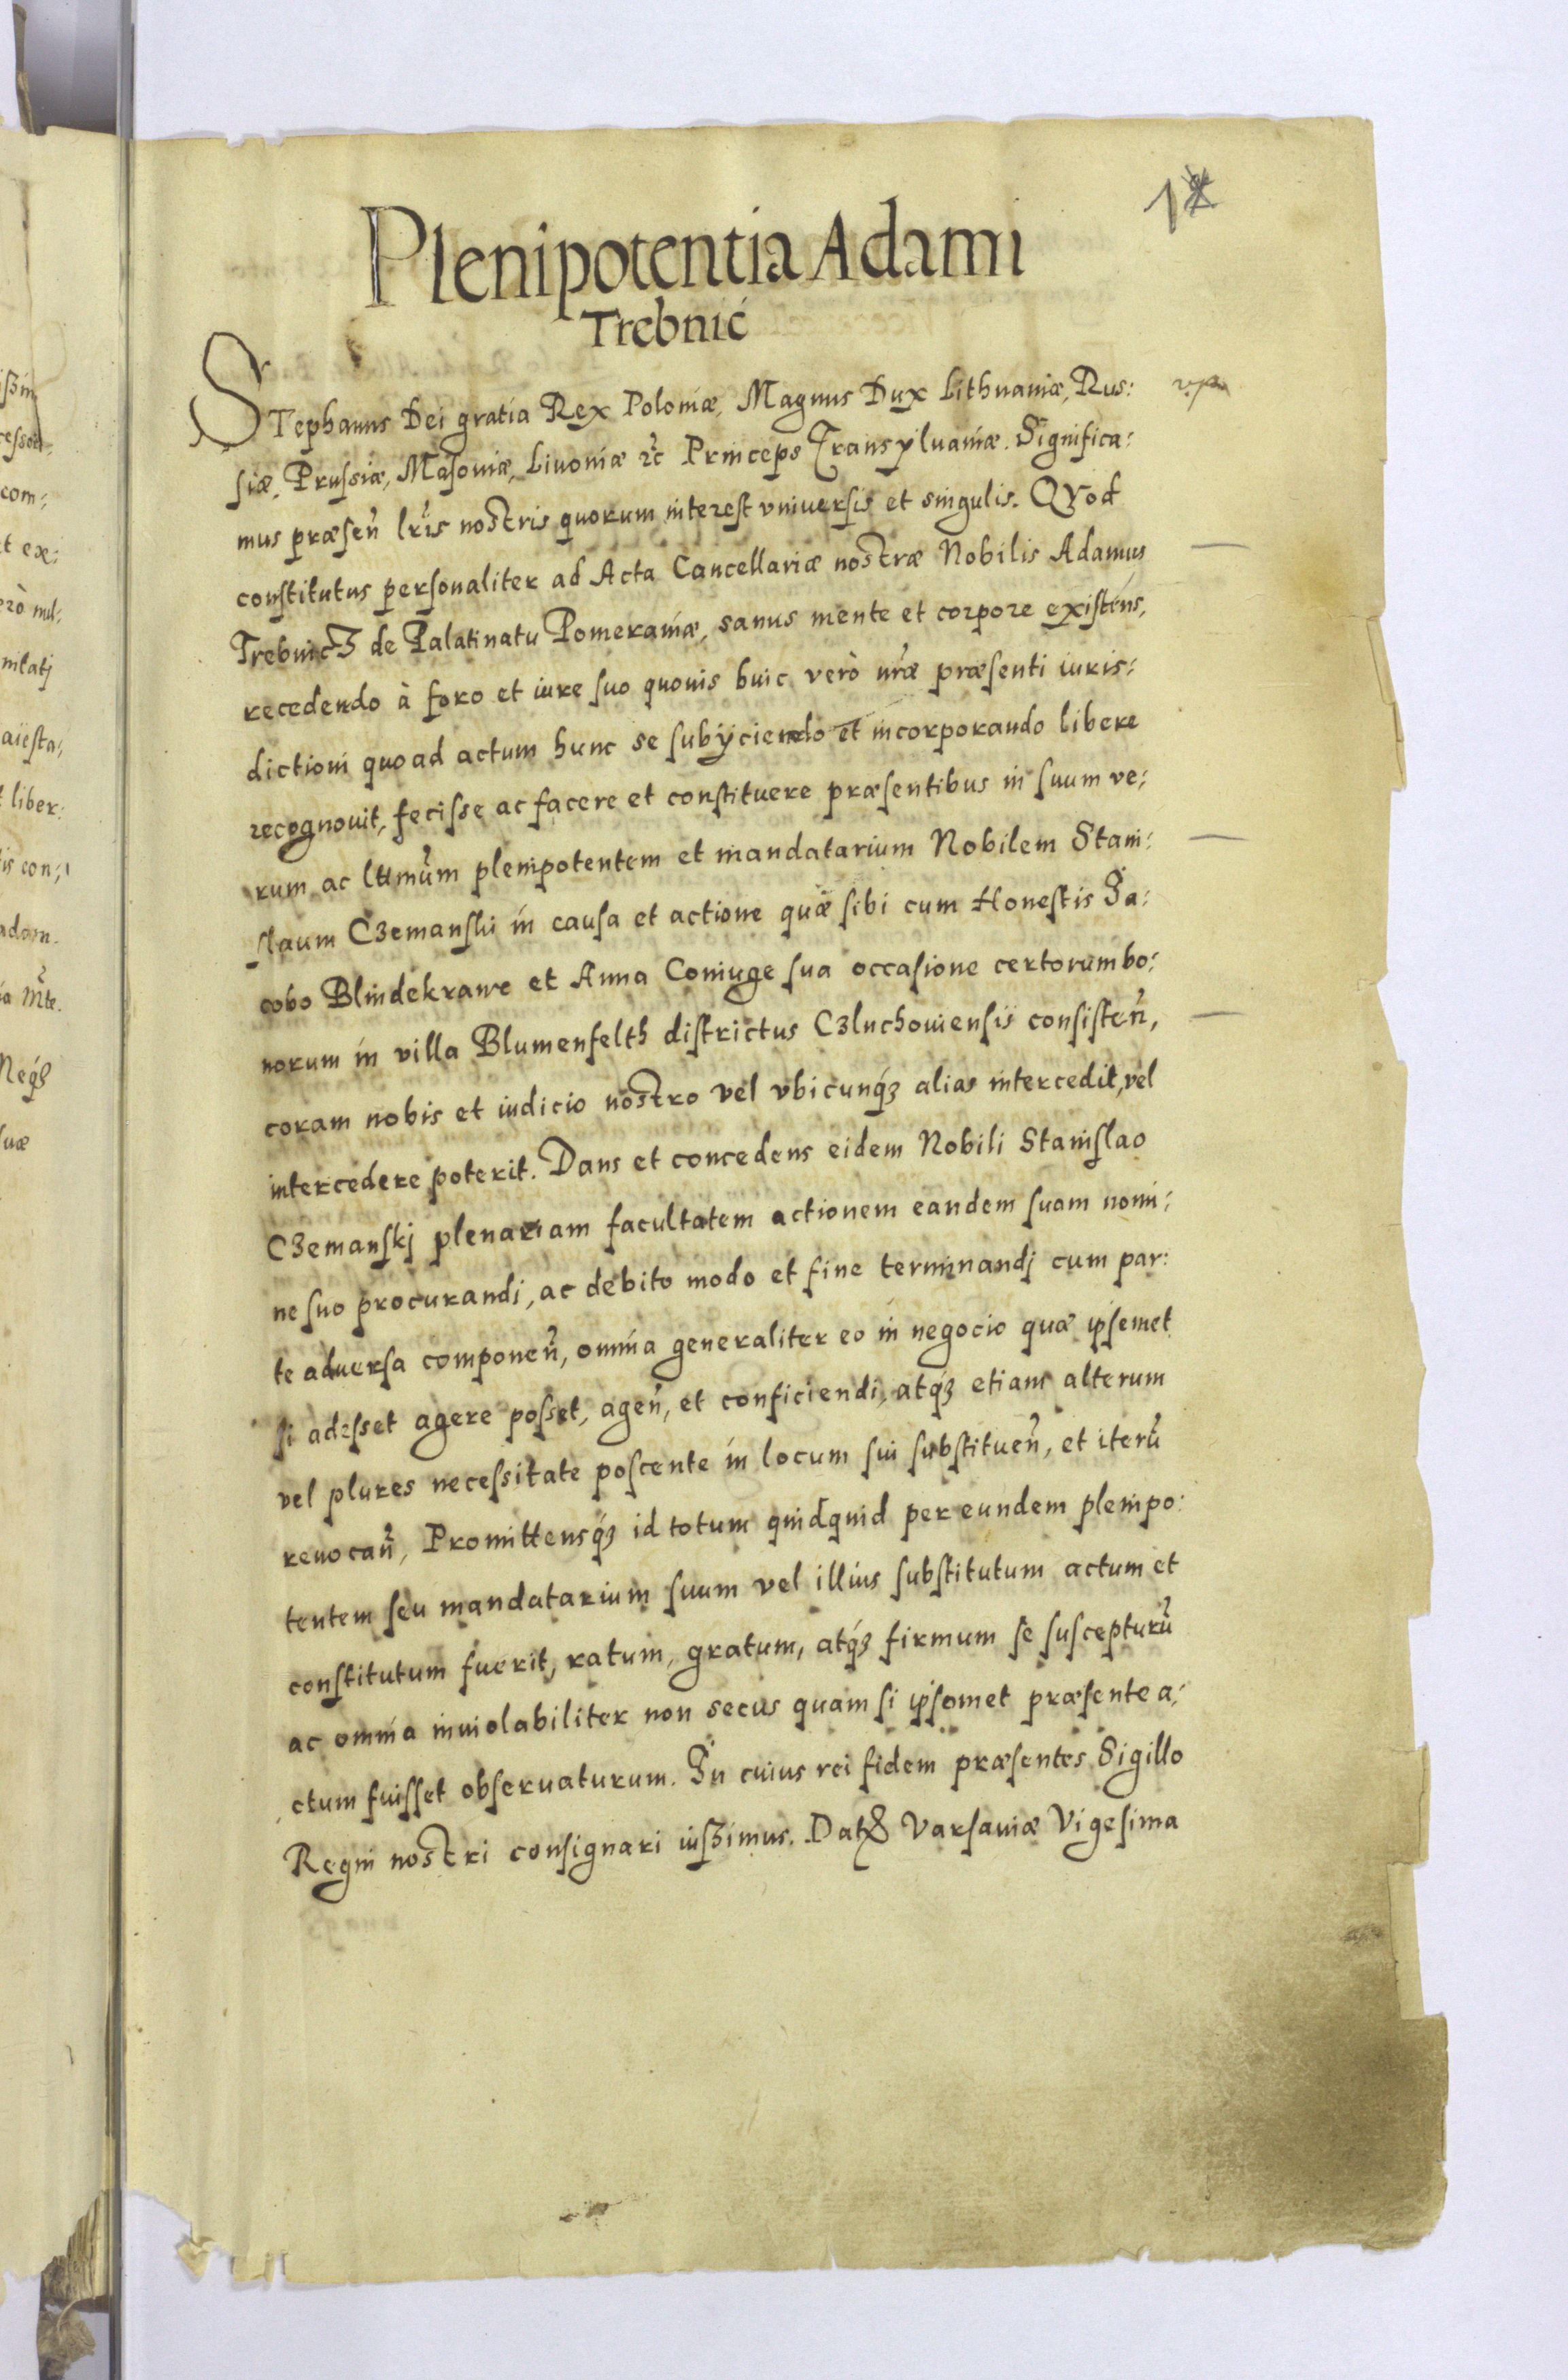 1
Plenipotentia Adami
Trebnić
STephanus Dei gratia Rex Poloniæ, Magnus Dux Lithuaniæ, Rus:
siæ, Prussiæ, Masouiæ, Liuoniæ ꝛc̃ Princeps Transyluaniæ. Significa:
mus præsen̄ lr̃is nostris quorum interest vniuersis et singulis. QVod
constitutus personaliter ad Acta Cancellariæ nostræ Nobilis Adamus
Trebnicz de Palatinatu Pomeraniæ, sanus mente et corpore existens,
recedendo à foro et iure suo quouis huic verò nr̃æ præsenti iuris:
dictioni quo ad actum hunc se subÿciendo et incorporando libere
recognouit, fecisse ac facere et constituere præsentibus in suum ve:
rum ac lttmũm plenipotentem et mandatarium Nobilem Stani:
slaum Czemanski in causa et actione quæ sibi cum Honestis Ja:
cobo Blindekrawe et Anna Coniuge sua occasione certorum bo:
norum in villa Blumenfelth districtus Czluchouiensis consisten̄,
coram nobis et iudicio nostro vel vbicunqꝫ alias intercedit, vel
intercedere poterit. Dans et concedens eidem Nobili Stanislao
Czemanskj plenariam facultatem actionem eandem suam nomi:
ne suo procurandi, ac debito modo et fine terminandj cum par:
te aduersa componen̄, omnia generaliter eo in negocio quæ ipsemet
si adesset agere posset, agen̄, et conficiendi, atqꝫ etiam alterum
vel plures necessitate poscente in locum sui substituen̄, et iterũ
reuocan̄, Promittensqꝫ id totum quidquid per eundem plenipo:
tentem seu mandatarium suum vel illius substitutum actum et
constitutum fuerit, ratum, gratum, atqꝫ firmum se suscepturũ
ac omnia inuiolabiliter non secus quam si ipsomet præsente a:
ctum fuisset obseruaturum. In cuius rei fidem præsentes Sigillo
Regni nostri consignari iuszimus. Datꝫ Varsauiæ Vigesima